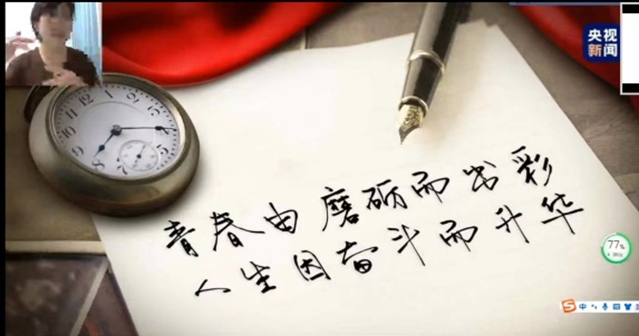 央视
新闻
青春由磨砺而出彩
人生因奋斗而升华
77%
中